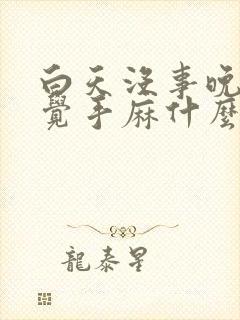 白天沒事晚
覺手麻什麼
龍泰星